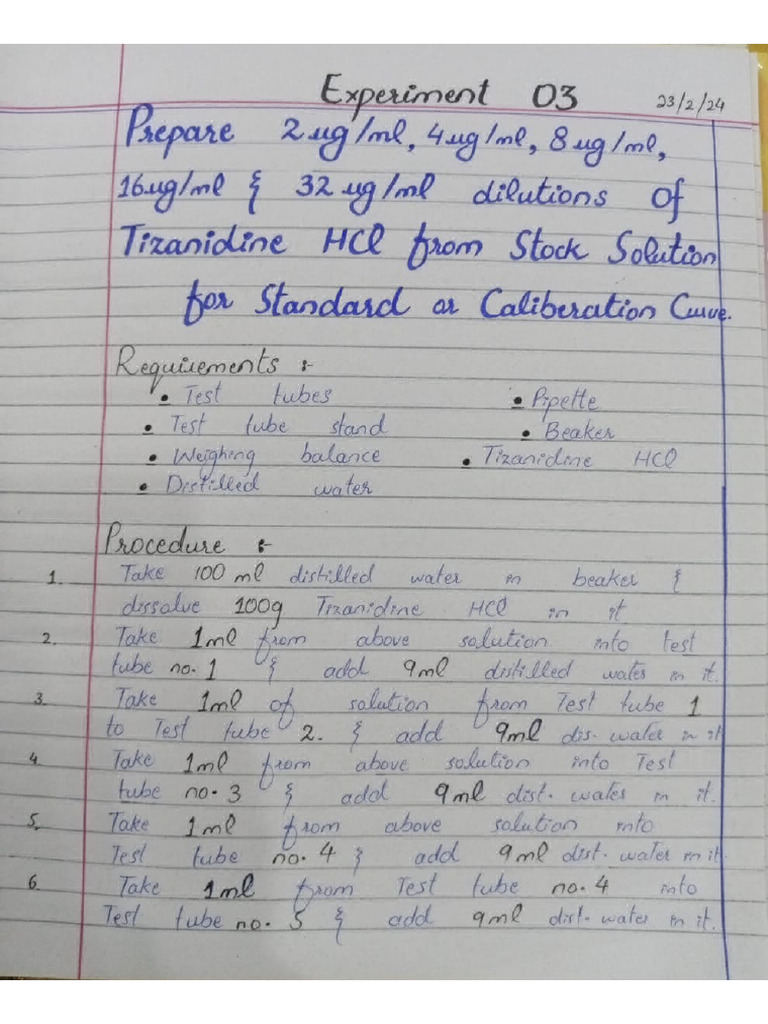 Experiment 03 23/2/24
Prepare 2ug/ml, 4ug/ml, 8ug/ml,
16ug/ml & 32ug/ml dilutions of
Tizanidine HCl from Stock Solution
for Standard or Caliberation Curve.
Requirements :-
• Test tubes • Pipette
• Test tube stand • Beaker
• Weighing balance • Tizanidine HCl
• Distilled water
Procedure :-
1. Take 100 ml distilled water in beaker &
dissolve 100g Tizanidine HCl in it
2. Take 1ml from above solution into test
tube no. 1 & add 9ml distilled water in it.
3. Take 1ml of solution from Test tube 1
to Test tube 2. & add 9ml dis. water in it
4. Take 1ml from above solution into Test
tube no. 3 & add 9ml dist. water in it.
5. Take 1ml from above solution into
Test tube no. 4 & add 9ml dist. water in it.
6. Take 1ml from Test tube no. 4 into
Test tube no. 5 & add 9ml dist. water in it.